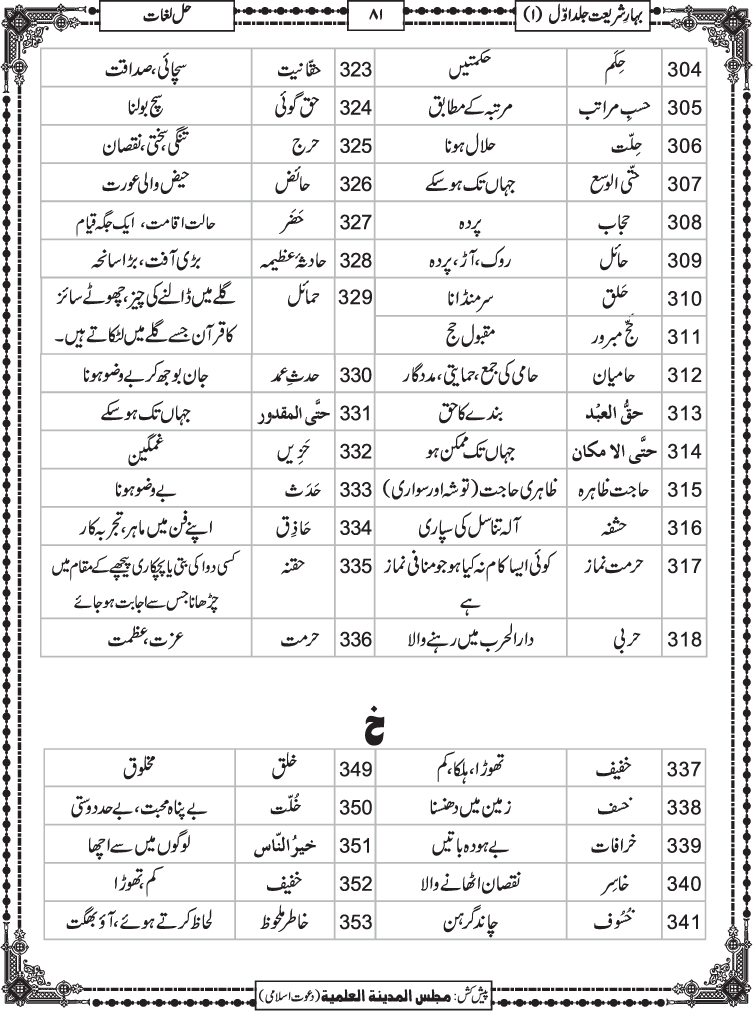 بہارِ شریعت جلد اوّل (۱)
۸۱
حل لغات
304 حِکَم حکمتیں 323 حقّانیت سچائی، صداقت
305 حسبِ مراتب مرتبہ کے مطابق 324 حق گوئی سچ بولنا
306 حِلّت حلال ہونا 325 حرج تنگی، سختی، نقصان
307 حتّی الوسع جہاں تک ہو سکے 326 حائض حیض والی عورت
308 حجاب پردہ 327 حَضَر حالت اقامت، ایک جگہ قیام
309 حائل روک، آڑ، پردہ 328 حادثۂ عظیمہ بڑی آفت، بڑا سانحہ
310 حَلق سر منڈانا 329 حمائل گلے میں ڈالنے کی چیز، چھوٹے سائز
311 حجِّ مبرور مقبول حج کا قرآن جسے گلے میں لٹکاتے ہیں۔
312 حامیان حامی کی جمع، حمایتی، مددگار 330 حدثِ عمد جان بوجھ کر بے وضو ہونا
313 حقُّ العبْد بندے کا حق 331 حتَّی المقدور جہاں تک ہو سکے
314 حتَّی الا مکان جہاں تک ممکن ہو 332 حَزِیں غمگین
315 حاجت ظاہرہ ظاہری حاجت (توشہ اور سواری) 333 حَدَث بے وضو ہونا
316 حشفہ آلہ تناسل کی سپاری 334 حَاذِق اپنے فن میں ماہر، تجربہ کار
317 حرمت نماز کوئی ایسا کام نہ کیا ہو جو منافی نماز 335 حقنہ کسی دوا کی بتی یا پچکاری پیچھے کے مقام میں
ہے چڑھانا جس سے اجابت ہو جائے
318 حربی دارالحرب میں رہنے والا 336 حرمت عزت، عظمت
خ
337 خفیف تھوڑا، ہلکا، کم 349 خلق مخلوق
338 خسف زمین میں دھنسنا 350 خُلّت بے پناہ محبت، بے حد دوستی
339 خرافات بے ہودہ باتیں 351 خیرُ النّاس لوگوں میں سے اچھا
340 خاسِر نقصان اٹھانے والا 352 خفیف کم، تھوڑا
341 خُسُوف چاند گرہن 353 خاطر ملحوظ لحاظ کرتے ہوئے، آؤ بھگت
پیش کش: مجلس المدینۃ العلمیۃ (دعوتِ اسلامی)